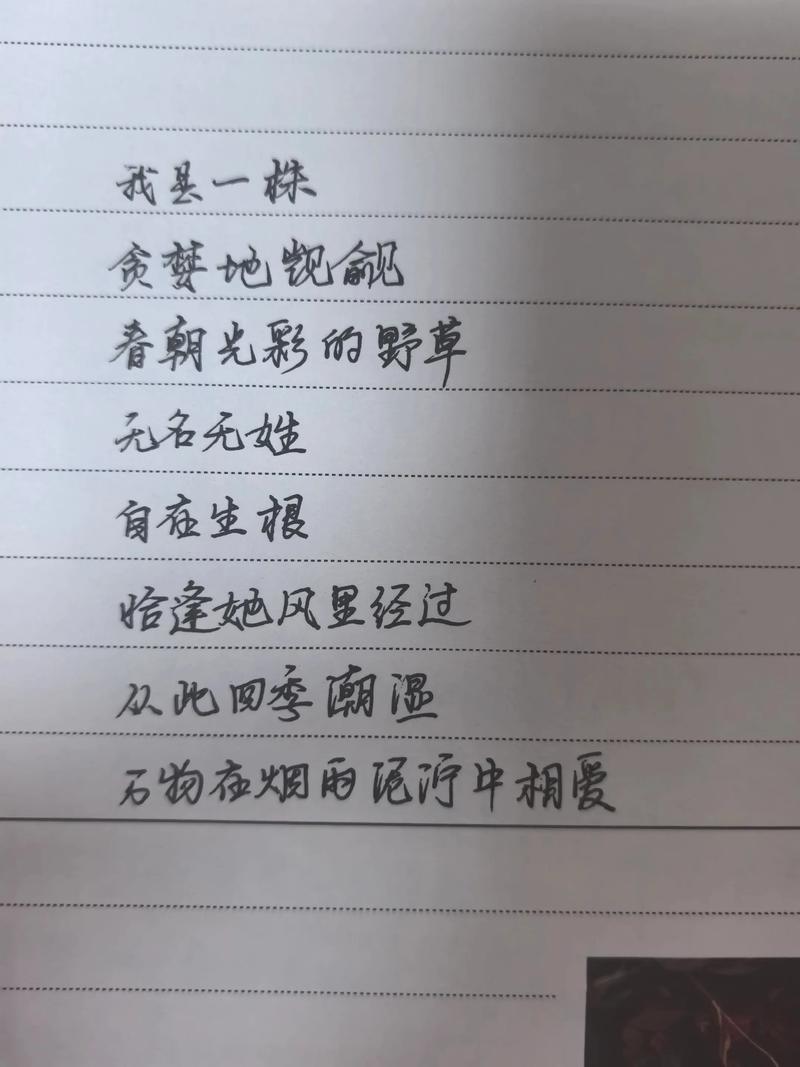 我是一株
贪婪地觊觎
春朝光彩的野草
无名无姓
自在生根
恰逢她风里经过
从此四季潮湿
万物在烟雨泥泞中相爱